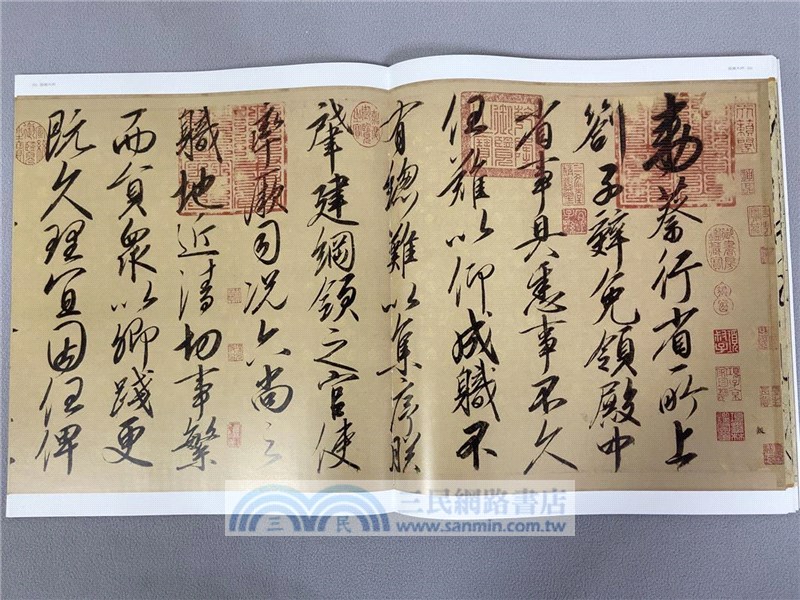 敕蔡行省所上
劄子辭免領殿中
省事具悉事不久
任難以仰成職不
有總難以集序朕
肇建綱領之官使
率厥司況六尚之
職地近清切事繁
而員眾以卿踐更
既久理宜因任俾
三民
三民網路書店
www.sanmin.com.tw